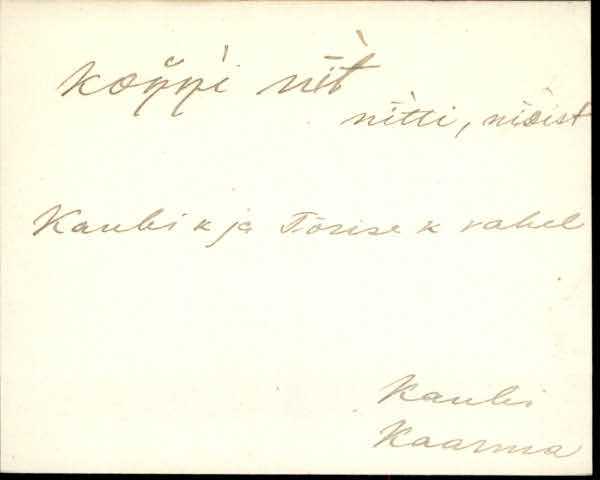 köppi nīt̀
nìtti, niðist
Kaubi k ja Tõrise k vahel
Kaubi
Kaarma